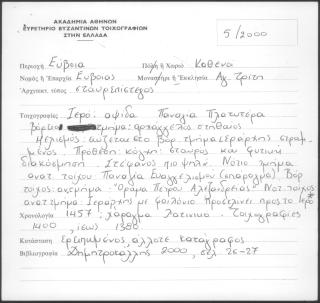 ΑΚΑΔΗΜΙΑ ΑΘΗΝΩΝ
ΕΥΡΕΤΗΡΙΟ ΒΥΖΑΝΤΙΝΩΝ ΤΟΙΧΟΓΡΑΦΙΩΝ
ΣΤΗΝ ΕΛΛΑΔΑ
5/2000
Περιοχή Εύβοια Πόλη ή Χωριό Καθενοί
Νομός ή Ἐπαρχία Ευβοίας Μοναστήρι ή Ἐκκλησία Αγ. Τριάς
Ἀρχιτεκτ. τύπος σταυρεπίστεγος
Τοιχογραφίες Ιερό: αψίδα Παναγία Πλατυτέρα
Βόρειο τμήμα: αρχάγγελος στηθαίος
Μελισμός: σώζεται στο βόρ. τμήμα ιεράρχης στραμ-
μένος. Πρόθεση: κόγχη: σταυρός και φυτική
διακόσμηση. Στέφανος πιο ψηλά. Νότιο τμήμα
ανατ. τοίχου Παναγία Ευαγγελισμού (σπάραγμα) Βόρ
τοίχος: αν. τμήμα: Όραμα Πέτρου Αλεξανδρείας. Νότ. τοίχος
ανατ. τμήμα: Ιεράρχης με φαιλόνιο προσκλίνει προς το Ιερό
Χρονολογία 1457: χάραγμα λατινικό. Τοιχογραφίες
1400, ίσως 1380
Κατάσταση Ερειπωμένος, άλλοτε κατάγραφος
Βιβλιογραφία Δημητροκάλλης 2000, σελ. 26-27